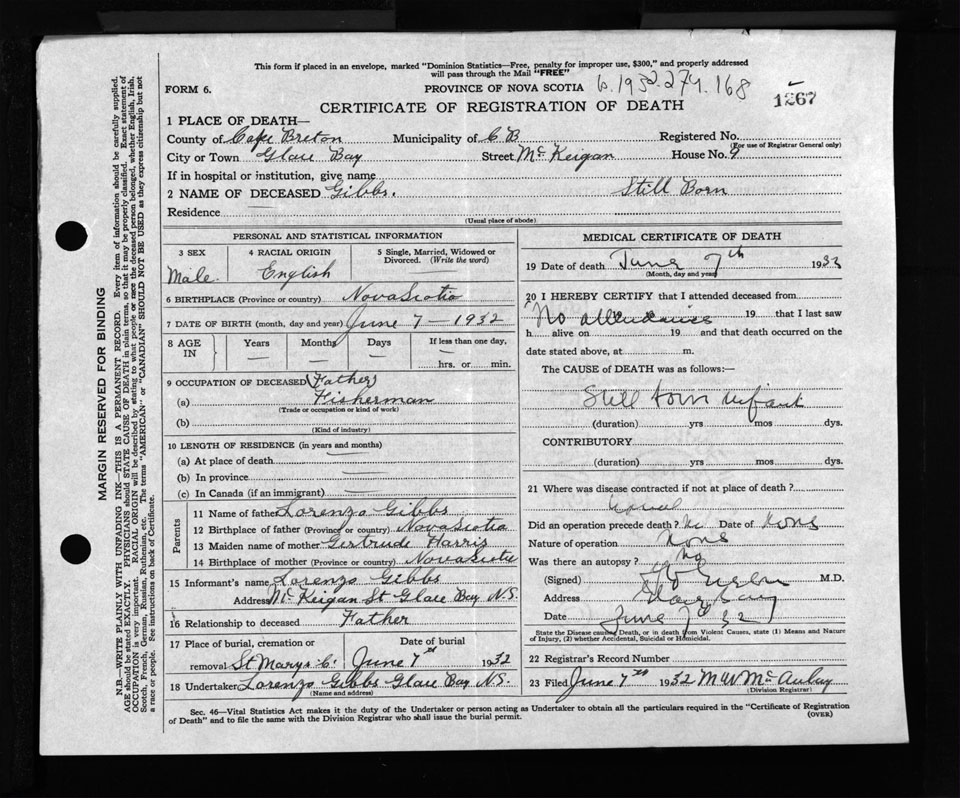 This form if placed in an envelope, marked "Dominion Statistics—Free, penalty for improper use, $300," and properly addressed
will pass through the Mail "FREE"
FORM 6.
PROVINCE OF NOVA SCOTIA
6.1932.274.168
1267
CERTIFICATE OF REGISTRATION OF DEATH
1 PLACE OF DEATH—
County of Cape Breton Municipality of C B Registered No.
(For use of Registrar General only)
City or Town Glace Bay Street McKeigan House No. 9
If in hospital or institution, give name
2 NAME OF DECEASED Gibbs. Still Born
Residence
(Usual place of abode)
PERSONAL AND STATISTICAL INFORMATION
3 SEX 4 RACIAL ORIGIN 5 Single, Married, Widowed or
Divorced. (Write the word)
Male English —
6 BIRTHPLACE (Province or country) Nova Scotia
7 DATE OF BIRTH (month, day and year) June 7 — 1932
8 AGE IN Years Months Days If less than one day,
— — — hrs. or min.
9 OCCUPATION OF DECEASED (Father)
(a) Fisherman
(Trade or occupation or kind of work)
(b)
(Kind of industry)
10 LENGTH OF RESIDENCE (in years and months)
(a) At place of death
(b) In province
(c) In Canada (if an immigrant)
Parents
11 Name of father Lorenzo Gibbs
12 Birthplace of father (Province or country) Nova Scotia
13 Maiden name of mother Gertrude Harris
14 Birthplace of mother (Province or country) Nova Scotia
15 Informant's name Lorenzo Gibbs
Address McKeigan St Glace Bay N.S.
16 Relationship to deceased Father
17 Place of burial, cremation or Date of burial
removal St Marys C. June 7th 1932
18 Undertaker Lorenzo Gibbs Glace Bay N.S.
(Name and address)
MEDICAL CERTIFICATE OF DEATH
19 Date of death June 7th 1932
(Month, day and year)
20 I HEREBY CERTIFY that I attended deceased from
No attendance 19 that I last saw
h alive on 19 and that death occurred on the
date stated above, at m.
The CAUSE of DEATH was as follows:—
Still born infant
(duration) yrs mos dys.
CONTRIBUTORY
(duration) yrs mos dys.
21 Where was disease contracted if not at place of death?
Did an operation precede death? No Date of None
Nature of operation None
Was there an autopsy? No
(Signed) M.D.
Address Glace Bay
Date June 7th 32
State the Disease causing Death, or in death from Violent Causes, state (1) Means and Nature
of Injury, (2) whether Accidental, Suicidal or Homicidal.
22 Registrar's Record Number
23 Filed June 7th 1932 M W McAulay
(Division Registrar)
Sec. 46—Vital Statistics Act makes it the duty of the Undertaker or person acting as Undertaker to obtain all the particulars required in the "Certificate of Registration
of Death" and to file the same with the Division Registrar who shall issue the burial permit.
(OVER)
MARGIN RESERVED FOR BINDING
N.B.—WRITE PLAINLY WITH UNFADING INK—THIS IS A PERMANENT RECORD. Every item of information should be carefully supplied.
AGE should be stated EXACTLY. PHYSICIANS should STATE CAUSE OF DEATH in plain terms, so that it may be properly classified. Exact statement of
OCCUPATION is very important. RACIAL ORIGIN will be described by stating to what people or race the deceased person belonged, whether English, Irish,
Scotch, French, German, Russian, Ruthenian, etc. The terms "AMERICAN" or "CANADIAN" SHOULD NOT BE USED as they express citizenship but not
a race or people. See instructions on back of Certificate.